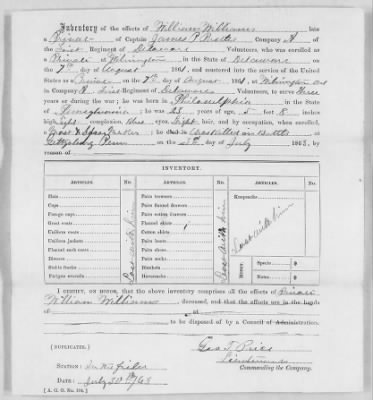 Inventory of the effects of William Williams late
a Private of Captain James P. Company A of
the First Regiment of Delaware Volunteers, who was enrolled as
a Private at Wilmington in the State of Delaware on
the 7th day of August 1861, and mustered into the service of the United
States as a Private on the 7th day of August 1861, at Wilmington Del
in Company A First Regiment of Delaware Volunteers, to serve Three
years or during the war; he was born in Philadelphia in the State
of Pennsylvania; he was 23 years of age, 5 feet 8 inches
high, light complexion, Blue eyes, light hair, and by occupation, when enrolled,
a ; he was killed in Battle
Gettysburg Penn on the day of July 1863, by
reason of
INVENTORY.
ARTICLES. No. ARTICLES. No. ARTICLES.
Hats Pairs trowsers Keepsakes:
Caps Pairs flannel drawers
Forage caps Pairs cotton drawers
Great coats Flannel shirts
Uniform coats Cotton shirts
Uniform jackets Pairs boots
Flannel sack coats Pairs shoes
Blouses Pairs socks
Stable frocks Blankets Money. Specie $
Fatigue overalls Haversacks Notes $
Lost with him
Lost with him
Lost with him
I CERTIFY, ON HONOR, that the above inventory comprises all the effects of Private
William Williams deceased, and that the effects are in the hands
of
to be disposed of by a Council of Administration.
(DUPLICATE.) Geo. T. Price
Lieutenant
STATION: In the field Commanding the Company.
DATE: July 30th/63
[A. G. O. No.